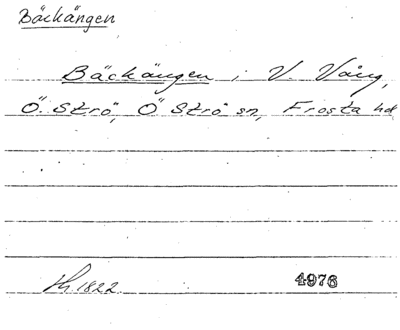 Bäckängen
Bäckängen i V. Vång,
Ö. Strö, Ö Strö sn, Frosta hd
1822. 4976